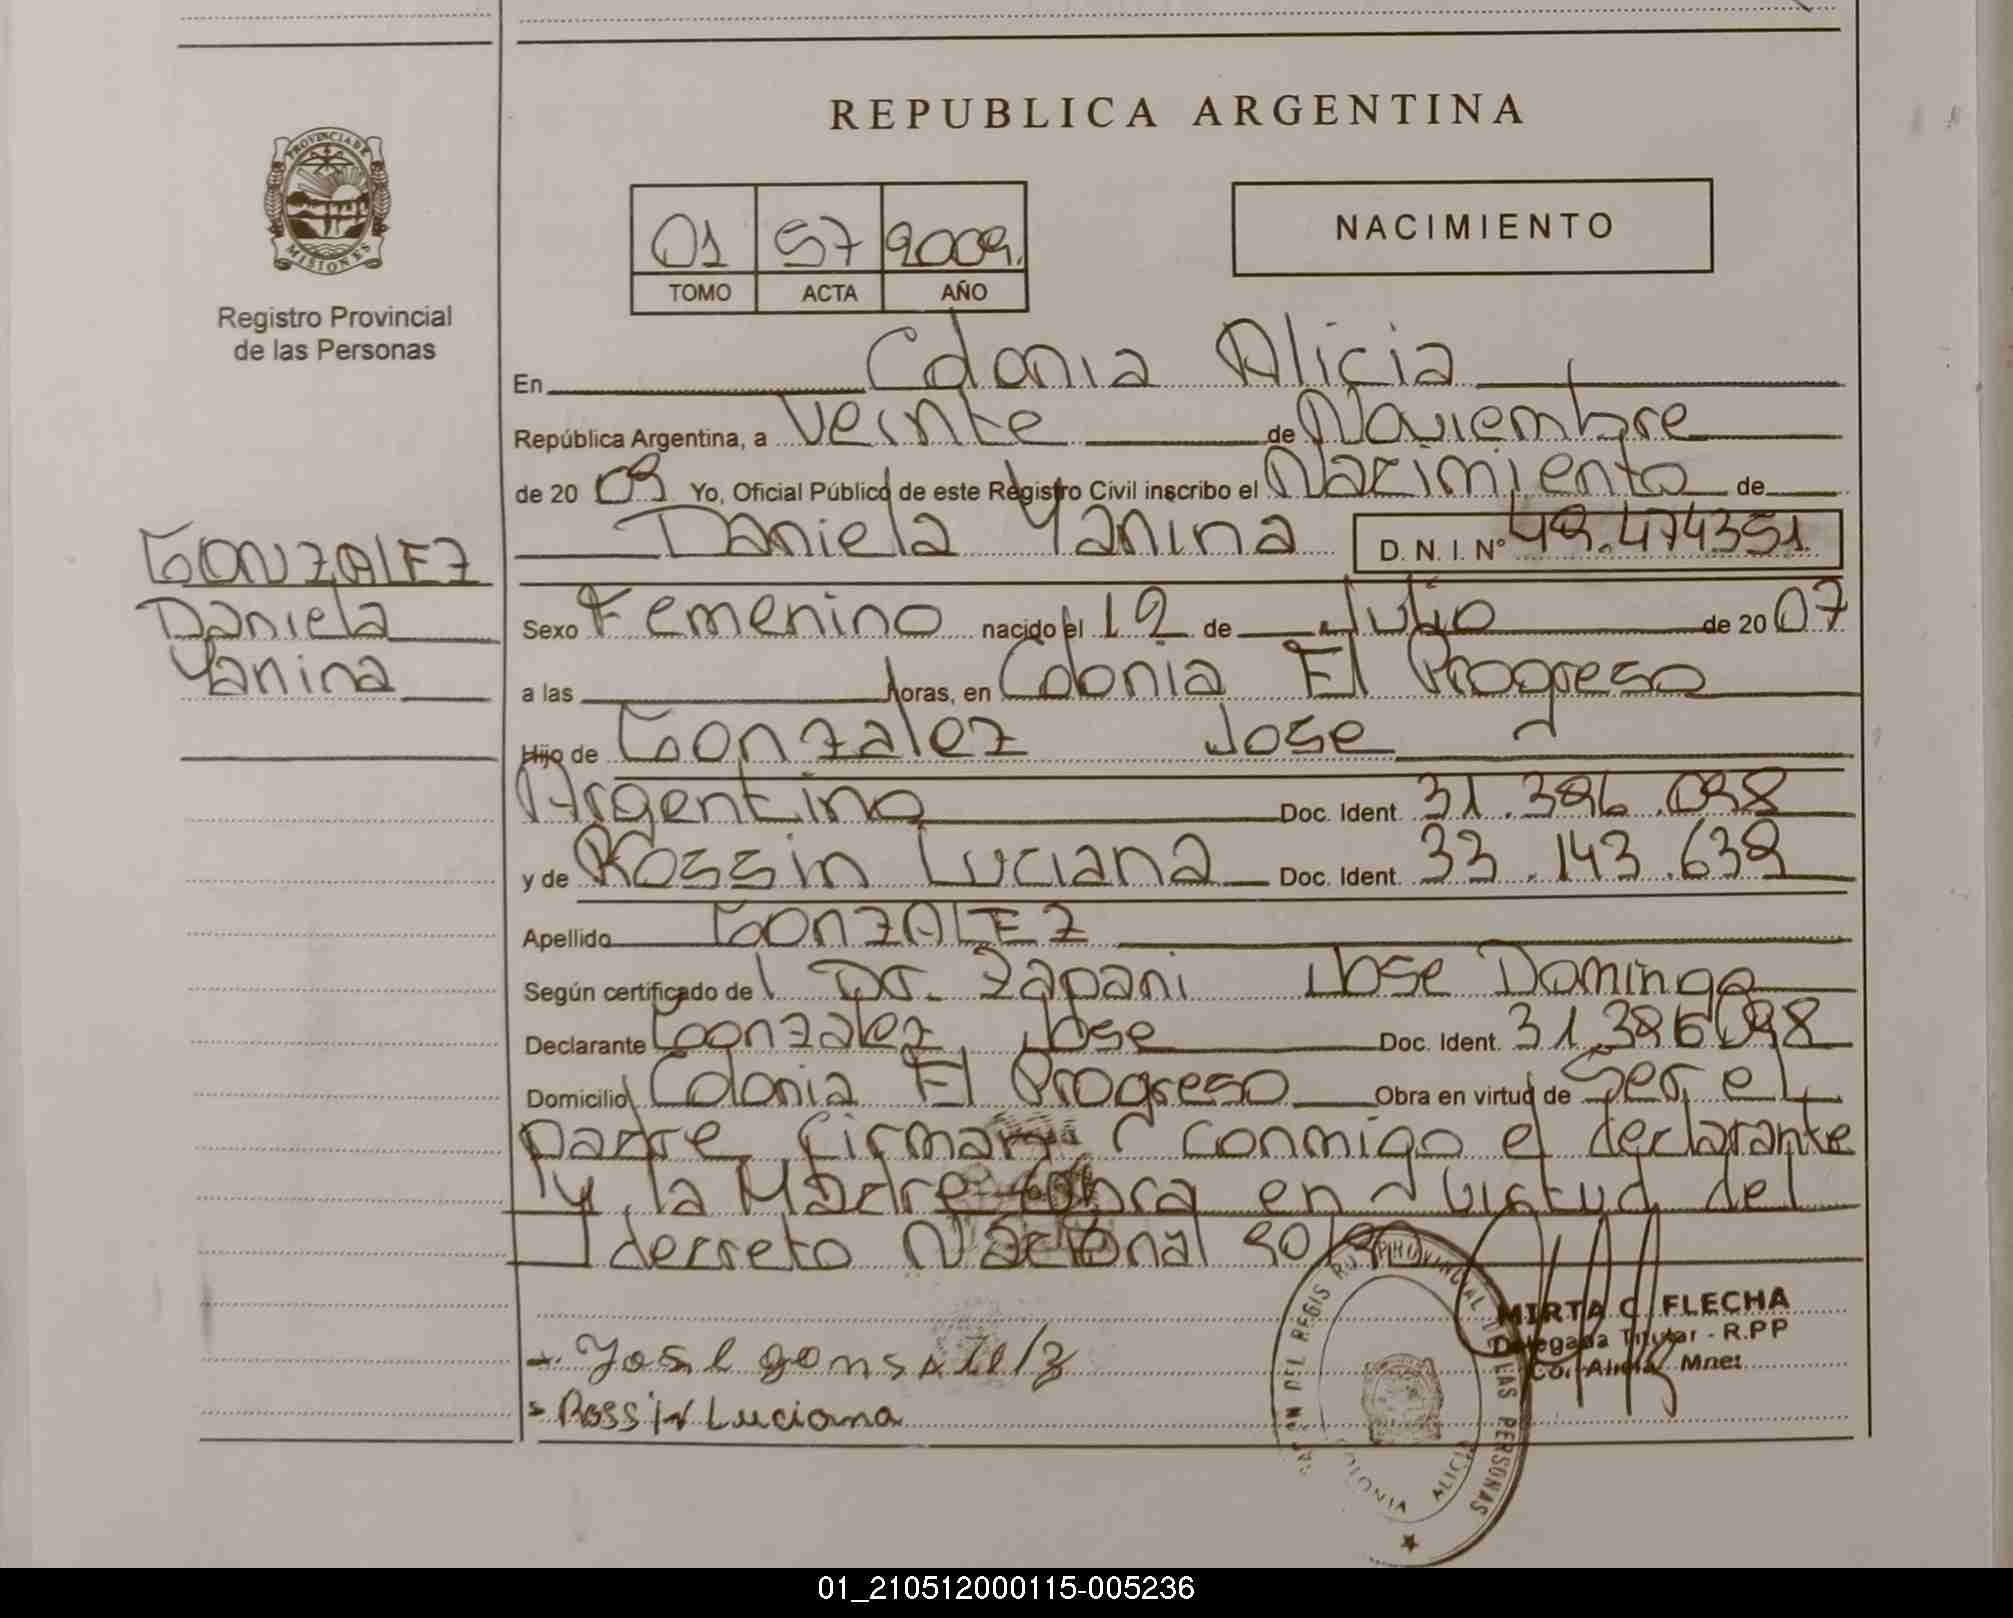 REPUBLICA ARGENTINA
PROVINCIA DE
MISIONES
Registro Provincial
de las Personas
01 57 2009.
TOMO ACTA AÑO
NACIMIENTO
En Colonia Alicia
República Argentina, a Veinte de Noviembre
de 20 09 Yo, Oficial Público de este Registro Civil inscribo el Nacimiento de
GONZALEZ
Daniela
Yanina
Daniela Yanina D. N. I. Nº 49.474351.
Sexo Femenino nacido el 12 de Julio de 20 07
a las horas, en Colonia El Progreso
Hijo de Gonzalez Jose
Argentino Doc. Ident. 31.396.098
y de Rossin Luciana Doc. Ident. 33.143.639
Apellido GONZALEZ
Según certificado de Dr. Zapani Jose Domingo
Declarante Gonzalez Jose Doc. Ident. 31.396098
Domicilio Colonia El Progreso Obra en virtud de Ser el
padre firman conmigo el declarante
y la Madre obra en virtud del
decreto Nacional 90/
Jose gonsalez
Rossin Luciana
MIRTA C. FLECHA
Delegada Titular - R.PP
Col. Alicia Mnes
PROVINCIAL DE LAS PERSONAS
COLONIA ALICIA
01_210512000115-005236